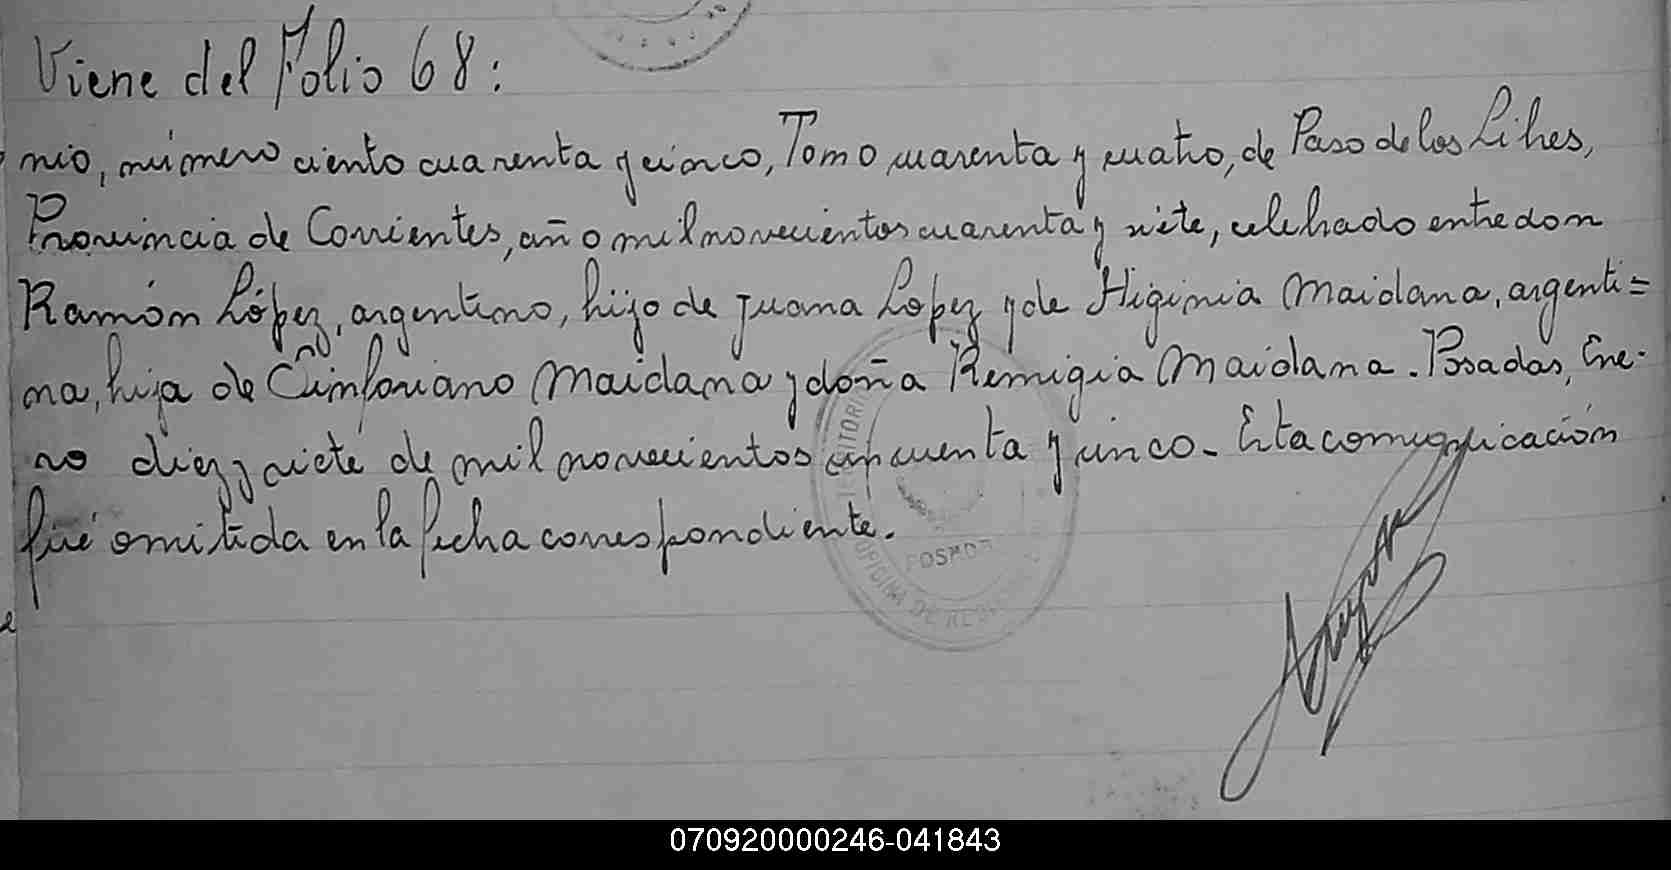 Viene del Folio 68:
nio, número ciento cuarenta y cinco, Tomo cuarenta y cuatro, de Paso de los Libres,
Provincia de Corrientes, año mil novecientos cuarenta y siete, celebrado entre don
Ramón López, argentino, hijo de Juana Lopez y de Higinia Maidana, argenti=
na, hija de Cinforiano Maidana y doña Remigia Maidana. Posadas, Ene-
ro diez y siete de mil novecientos cincuenta y cinco. Esta comunicación
fué omitida en la fecha correspondiente.
OFICINA DE
POSADAS
070920000246-041843